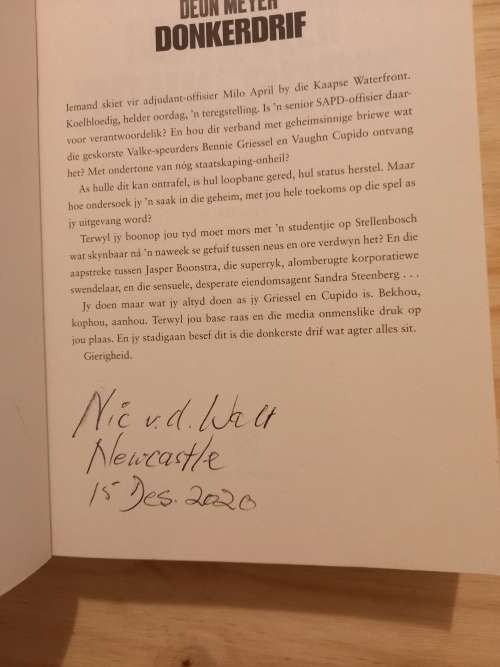 DEON MEYER
DONKERDRIF
Iemand skiet vir adjudant-offisier Milo April by die Kaapse Waterfront.
Koelbloedig, helder oordag, 'n teregstelling. Is 'n senior SAPD-offisier daar-
voor verantwoordelik? En hou dit verband met geheimsinnige briewe wat
die geskorste Valke-speurders Bennie Griessel en Vaughn Cupido ontvang
het? Met ondertone van nóg staatskaping-onheil?
As hulle dit kan ontrafel, is hul loopbane gered, hul status herstel. Maar
hoe ondersoek jy 'n saak in die geheim, met jou hele toekoms op die spel as
jy uitgevang word?
Terwyl jy boonop jou tyd moet mors met 'n studentjie op Stellenbosch
wat skynbaar ná 'n naweek se gefuif tussen neus en ore verdwyn het? En die
aapstreke tussen Jasper Boonstra, die superryk, alomberugte korporatiewe
swendelaar, en die sensuele, desperate eiendomsagent Sandra Steenberg . . .
Jy doen maar wat jy altyd doen as jy Griessel en Cupido is. Bekhou,
kophou, aanhou. Terwyl jou base raas en die media onmenslike druk op
jou plaas. En jy stadigaan besef dit is die donkerste drif wat agter alles sit.
Gierigheid.
Nic v.d. Walt
Newcastle
15 Des. 2020